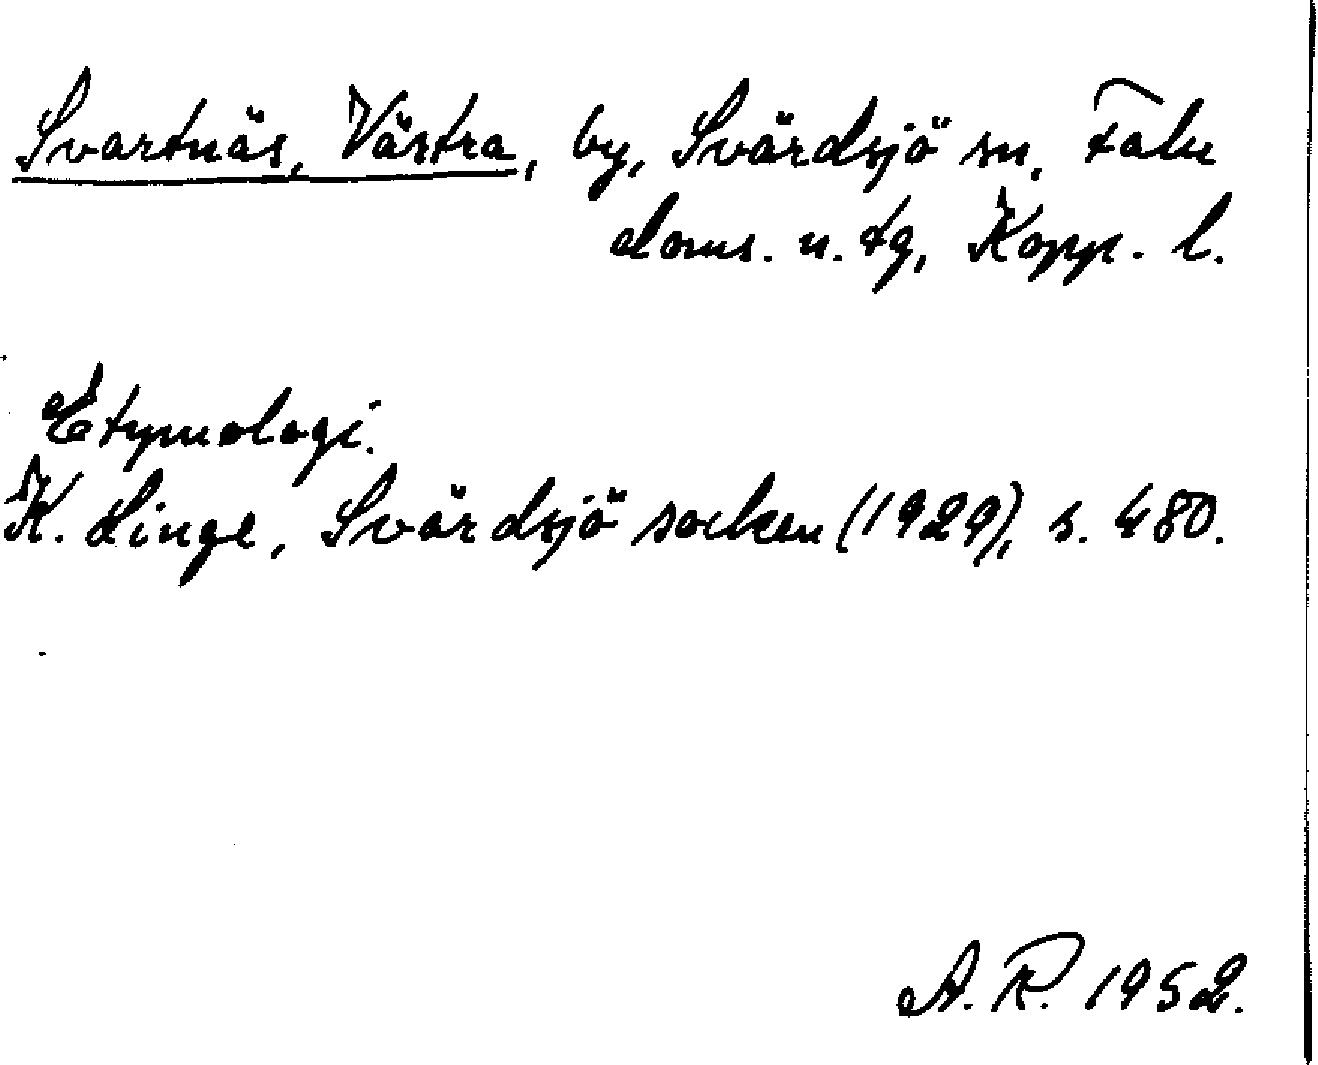 Svartnäs, Västra, by, Svärdsjö sn, Falu
doms. n. tg, Kopp. l.
Etymologi.
K. Linge, Svärdsjö socken (1929), s. 480.
A. R. 1952.